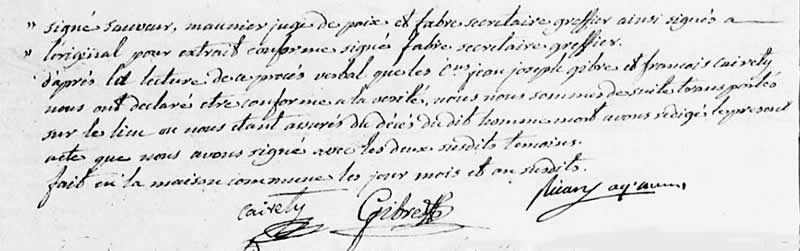 " signé sauveur, maunier juge de paix et fabre secretaire greffier ainsi signés a
" l'original pour extrait conforme signé fabre secretaire greffier.
d'après la lecture de ce procés verbal que les Cens jean joseph gibre et francois Cairety
nous ont declaré etre conforme a la verité, nous nous sommes de suite transportés
sur le lieu ou nous etant assurés du décés du dit homme mort avons redigé le present
acte que nous avons signé avec les deux susdits temoins.
fait en la maison commune les jour mois et an susdits.
Cairety Gibre